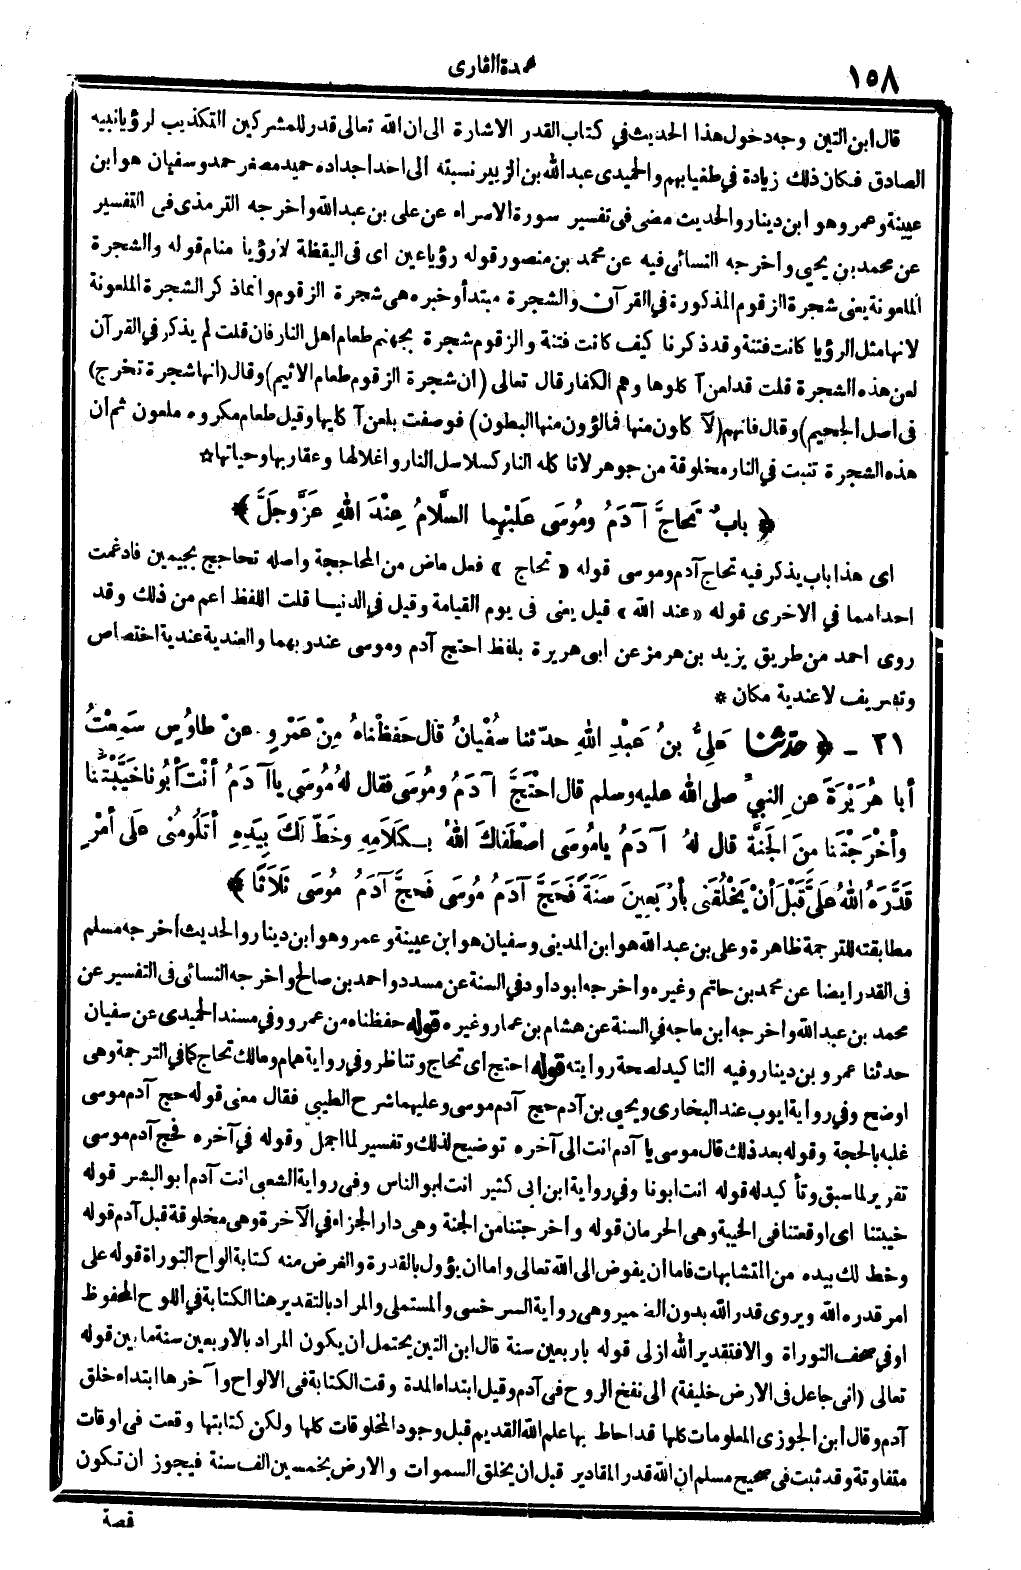 ١٥٨
عمدة القارى
قال ابن التين وجه دخول هذا الحديث في كتاب القدر الاشارة الى ان الله تعالى قدر للمشركين التكذيب لرؤيا نبيه
الصادق فكان ذلك زيادة في طغيانهم والحميدى عبدالله بن الزبير نسبته الى احد اجداده حميد مصغر حمد وسفيان هو ابن
عيينة وعمرو هو ابن دينار والحديث مضى فى تفسير سورة الاسراء عن على بن عبدالله واخرجه الترمذى فى التفسير
عن محمد بن يحيى وأخرجه النسائى فيه عن محمد بن منصور قوله رؤيا عين اى فى اليقظة لا رؤيا منام قوله والشجرة
الملعونة يعنى شجرة الزقوم المذكورة في القرآن والشجرة مبتدأ وخبره هى شجرة الزقوم وانما ذكر الشجرة الملعونة
لانها مثل الرؤيا كانت فتنة وقد ذكرنا كيف كانت فتنة والزقوم شجرة بجهنم طعام اهل النار فان قلت لم يذكر في القرآن
لعن هذه الشجرة قلت قد لعن آكلوها وهم الكفار قال تعالى (ان شجرة الزقوم طعام الاثيم) وقال (انها شجرة تخرج
فى اصل الجحيم) وقال فانهم (لآكلون منها فمالؤن منها البطون) فوصفت بلعن آكليها وقيل طعام مكروه ملعون ثم ان
هذه الشجرة تنبت في النار مخلوقة من جوهر لا تأكله النار كسلاسل النار واغلالها وعقاربها وحياتها☆
﴿ بابٌ تَحَاجَّ آدَمُ ومُوسَى عَلَيْهِما السَّلَامُ عِنْدَ اللهِ عَزَّ وجَلَّ ﴾
اى هذا باب يذكر فيه تحاج آدم وموسى قوله «تحاج» فعل ماض من المحاججة واصله تحاجج بجيمين فادغمت
احداهما في الاخرى قوله «عند الله» قيل يعنى فى يوم القيامة وقيل في الدنيا قلت اللفظ اعم من ذلك وقد
روى احمد من طريق يزيد بن هرمز عن ابى هريرة بلفظ احتج آدم وموسى عند ربهما والعندية عندية اختصاص
وتشريف لا عندية مكان *
٢١ - ﴿ حدّثنا عَلِيُّ بنُ عَبْدِ اللهِ حدّثنا سُفْيانُ قال حَفِظْناهُ مِنْ عَمْرٍو عنْ طاوُسٍ سَمِعْتُ
أبا هُرَيْرَةَ عنِ النبيِّ صلى الله عليه وسلم قال احْتَجَّ آدَمُ ومُوسَى فقال لهُ مُوسَى يا آدَمُ أنْتَ أبُونا خَيَّبْتَنا
وأخْرَجْتَنا مِنَ الجَنَّةِ قال لهُ آدَمُ يا مُوسَى اصْطَفَاكَ اللهُ بِكَلَامِهِ وخَطَّ لكَ بِيَدِهِ أتَلُومُنِى عَلَى أمْرٍ
قَدَّرَهُ اللهُ عَلَيَّ قَبْلَ أنْ يَخْلُقَنِى بأرْبَعِينَ سَنَةً فَحَجَّ آدَمُ مُوسَى فَحَجَّ آدَمُ مُوسَى ثَلَاثًا ﴾
مطابقته للترجمة ظاهرة وعلى بن عبدالله هو ابن المدينى وسفيان هو ابن عيينة وعمرو هو ابن دينار والحديث أخرجه مسلم
فى القدر ايضا عن محمد بن حاتم وغيره واخرجه ابو داود في السنة عن مسدد واحمد بن صالح واخرجه النسائى فى التفسير عن
محمد بن عبدالله واخرجه ابن ماجه في السنة عن هشام بن عمار وغيره قوله حفظناه من عمرو وفي مسند الحميدى عن سفيان
حدثنا عمرو بن دينار وفيه التاكيد لصحة روايته قوله احتج اى تحاج وتناظر وفي رواية همام ومالك تحاج كما في الترجمة وهى
اوضح وفي رواية ايوب عند البخارى ويحيى بن آدم حج آدم موسى وعليهما شرح الطيبى فقال معنى قوله حج آدم موسى
غلبه بالحجة وقوله بعد ذلك قال موسى يا آدم انت الى آخره توضيح لذلك وتفسير لما اجمل وقوله في آخره فحج آدم موسى
تقرير لما سبق وتأكيد له قوله انت ابونا وفي رواية ابن ابى كثير انت ابو الناس وفى رواية الشعبى انت آدم ابو البشر قوله
خيبتنا اى اوقعتنا فى الخيبة وهى الحرمان قوله واخرجتنا من الجنة وهى دار الجزاء في الآخرة وهى مخلوقة قبل آدم قوله
وخط لك بيده من المتشابهات فاما ان يفوض الى الله تعالى واما ان يؤول بالقدرة والغرض منه كتابة الواح التوراة قوله على
امر قدره الله ويروى قدر الله بدون الضمير وهى رواية السرخسى والمستملى والمراد بالتقدير هنا الكتابة في اللوح المحفوظ
او في صحف التوراة والا فتقدير الله ازلى قوله باربعين سنة قال ابن التين يحتمل ان يكون المراد بالاربعين سنة ما بين قوله
تعالى (انى جاعل فى الارض خليفة) الى نفخ الروح فى آدم وقيل ابتداء المدة وقت الكتابة فى الالواح وآخرها ابتداء خلق
آدم وقال ابن الجوزى المعلومات كلها قد احاط بها علم الله القديم قبل وجود المخلوقات كلها ولكن كتابتها وقعت فى اوقات
متفاوتة وقد ثبت فى صحيح مسلم ان الله قدر المقادير قبل ان يخلق السموات والارض بخمسين الف سنة فيجوز ان تكون
قصة